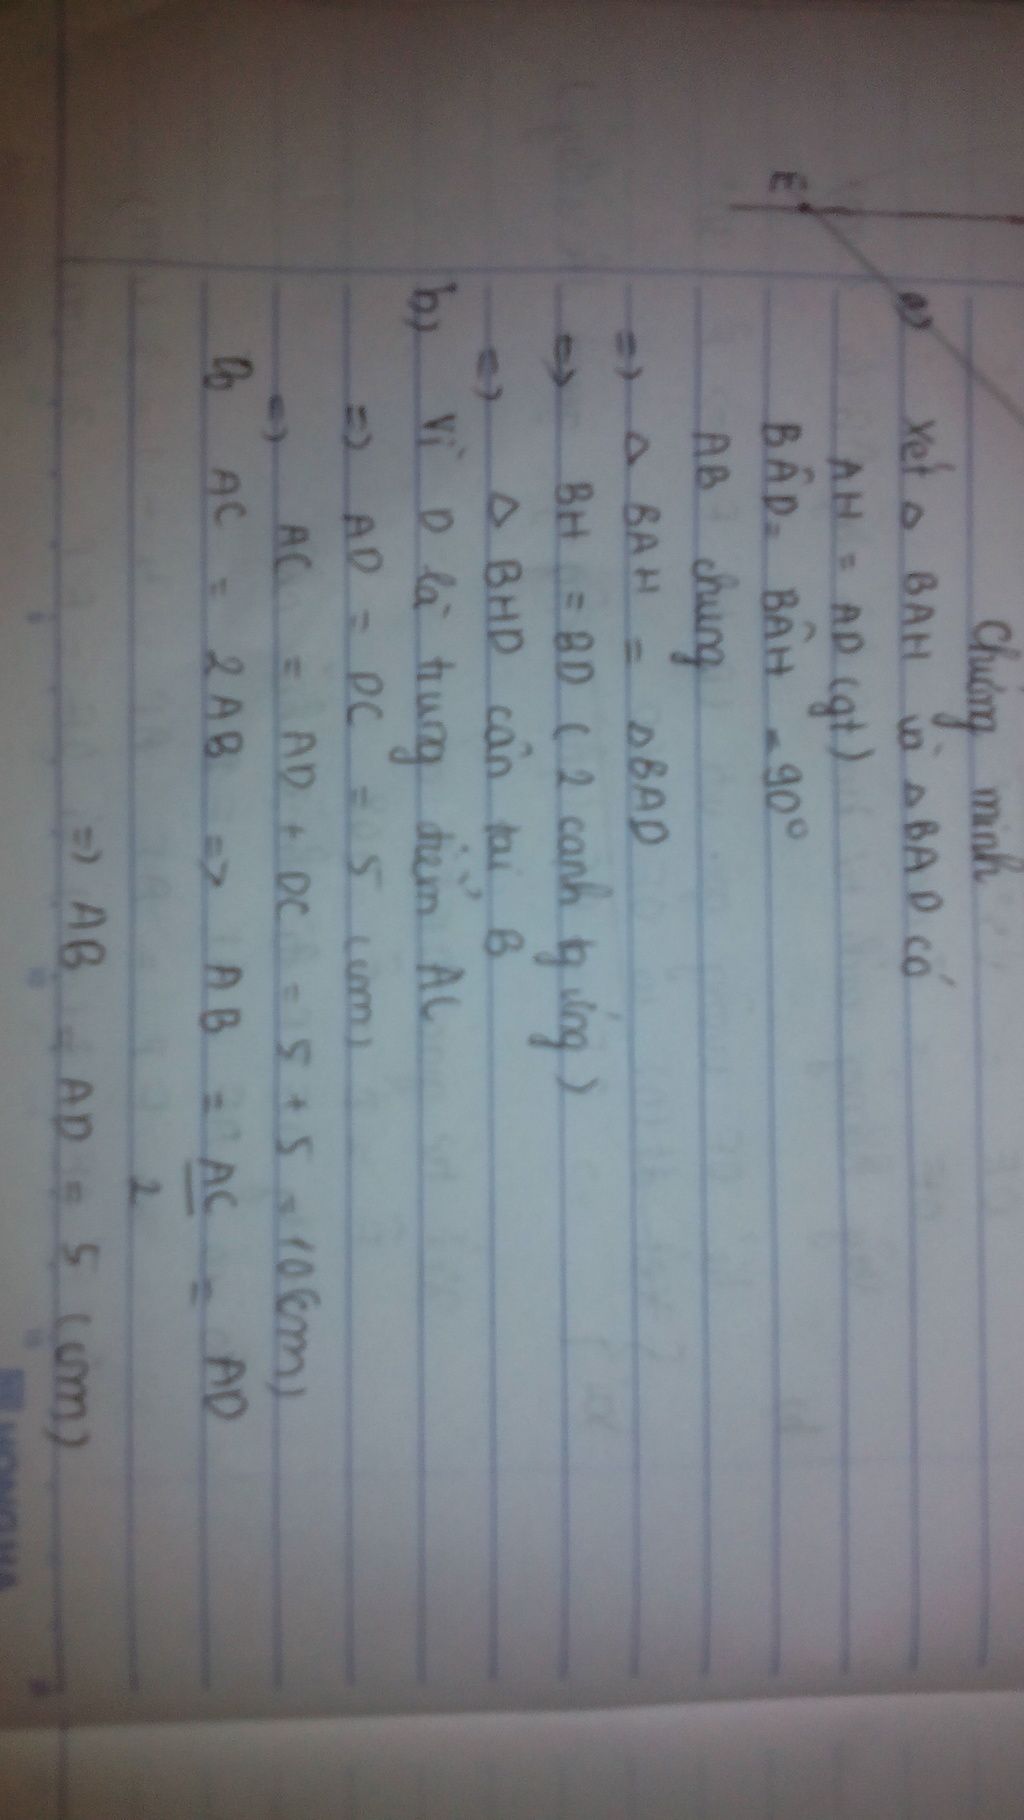 Chứng minh
E
a) Xét Δ BAH và Δ BAD có
AH = AD (gt)
BÂD = BÂH = 90°
AB chung
=> Δ BAH = Δ BAD
=> BH = BD ( 2 cạnh tg ứng )
=> Δ BHD cân tại B
b) Vì D là trung điểm AC
=> AD = DC = 5 (cm)
=> AC = AD + DC = 5 + 5 = 10 (cm)
AC = 2AB => AB = AC/2 = AD
=> AB = AD = 5 (cm)